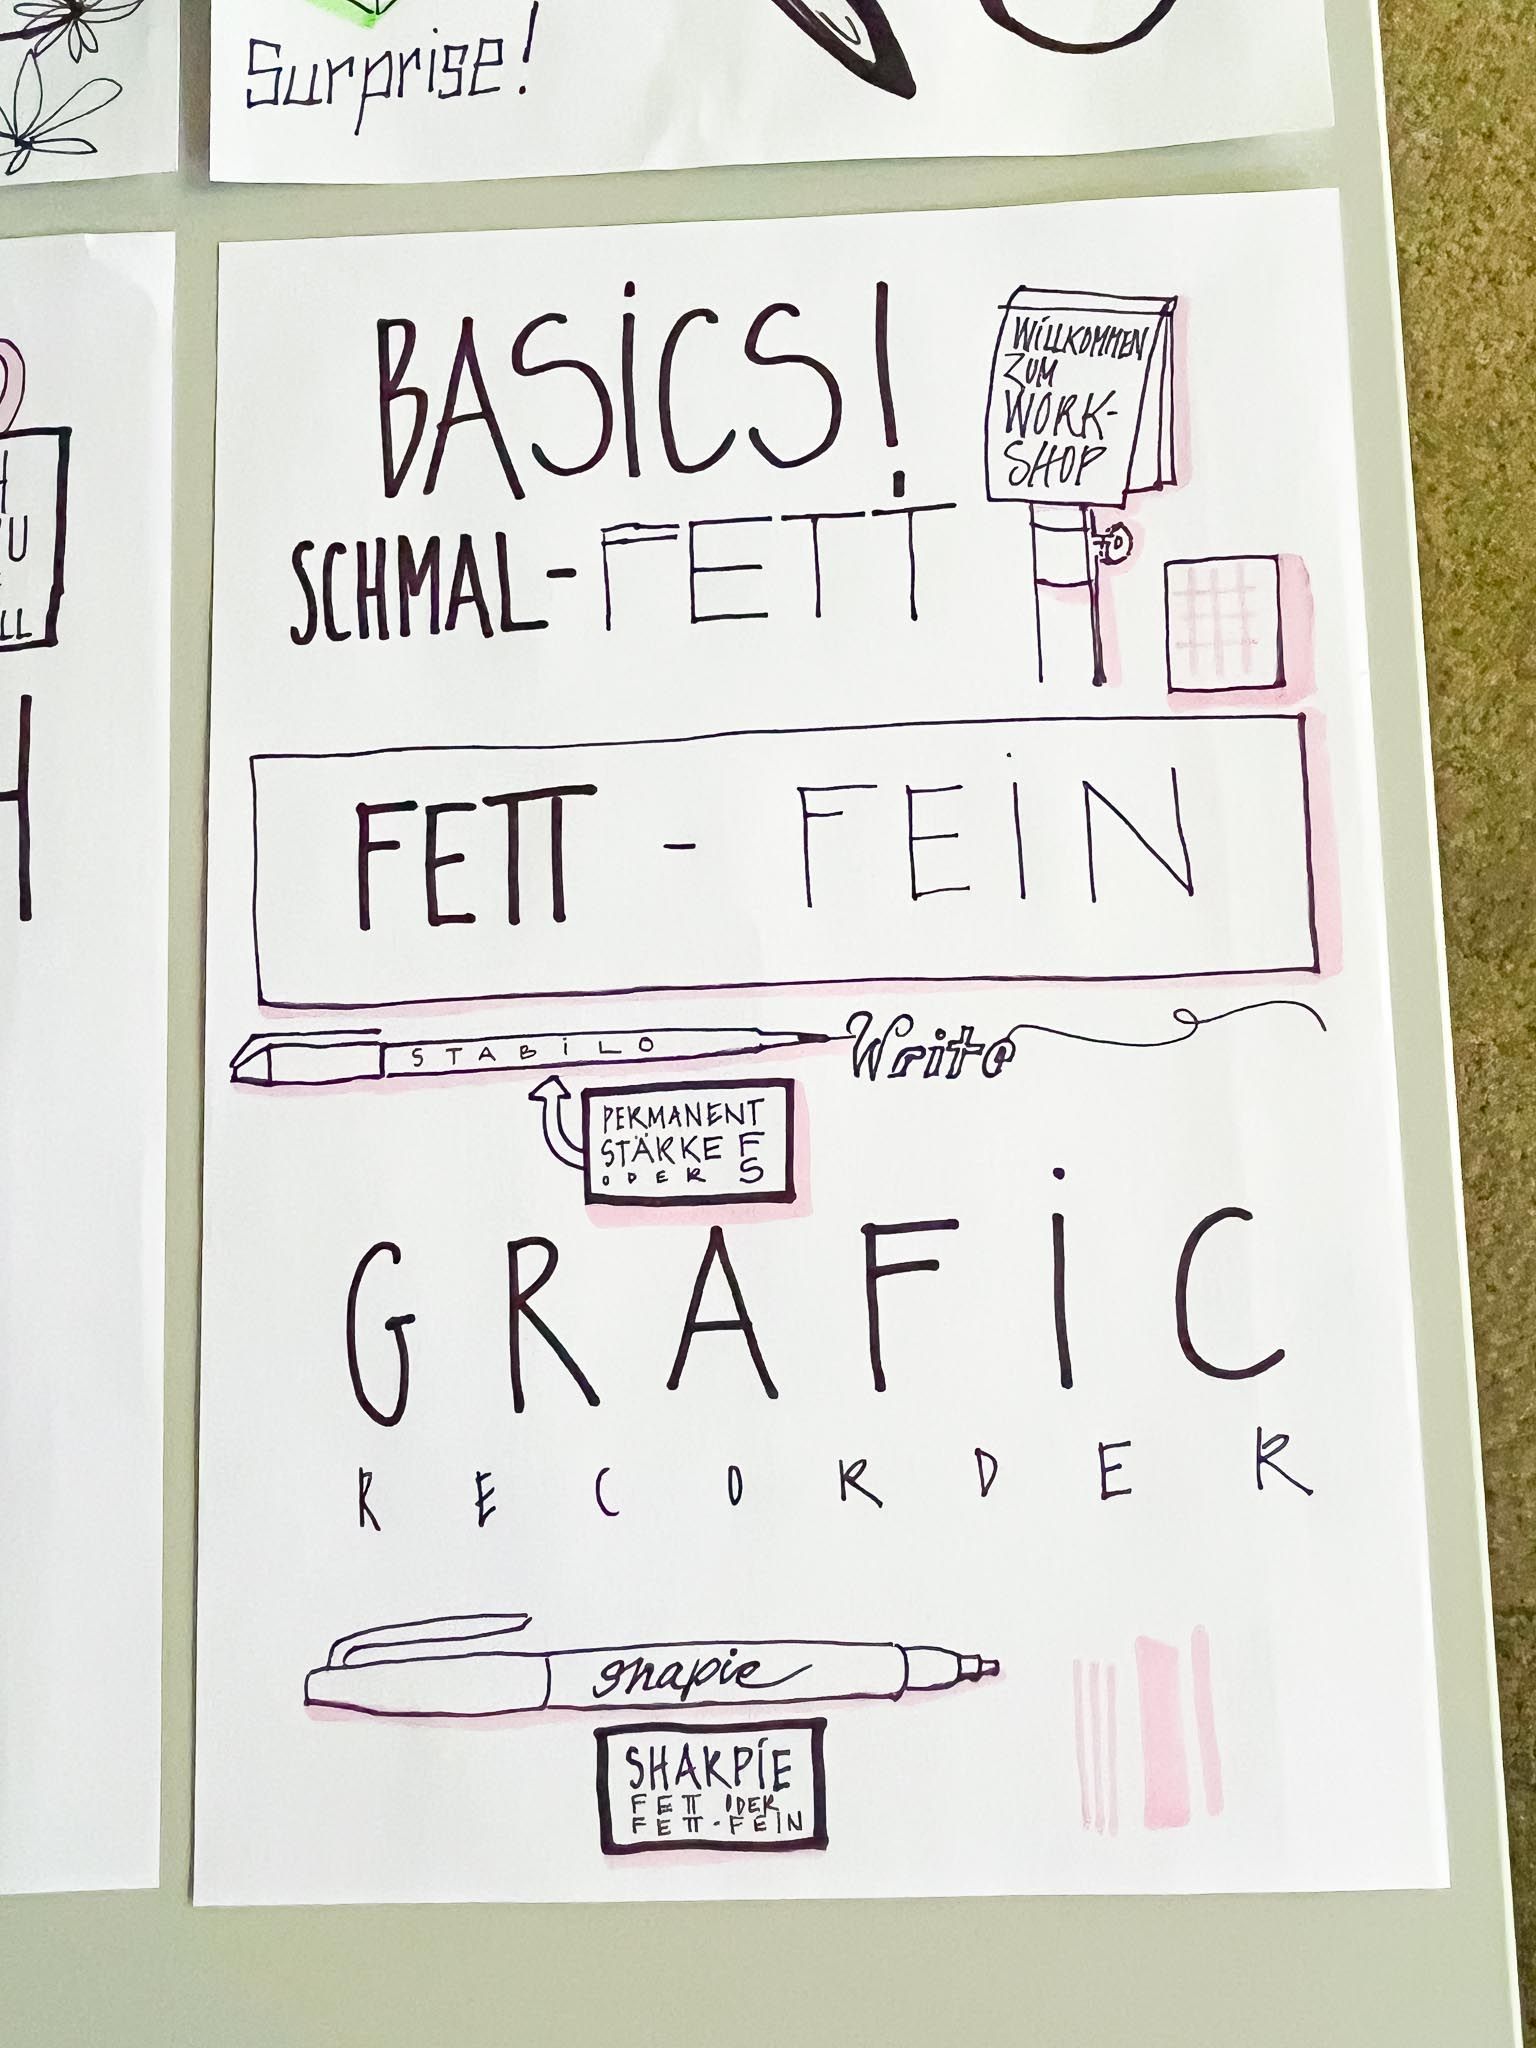 Surprise!
BASICS!
WILLKOMMEN
ZUM
WORK-
SHOP
SCHMAL-FETT
FETT - FEIN
STABILO
Write
PERMANENT
STÄRKE F
ODER S
GRAFIC
RECORDER
shapie
SHARPIE
FETT ODER
FETT-FEIN